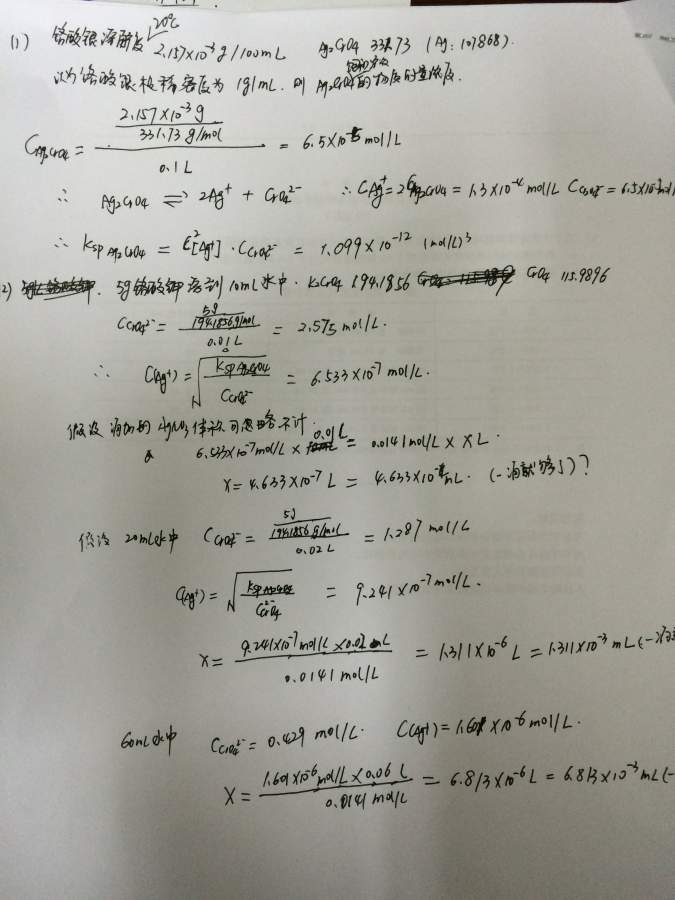 (1) 铬酸银溶解度 20℃ 2.157×10⁻³ g/100mL Ag₂CrO₄ 331.73 (Ag: 107.868).
认为铬酸银极稀密度为 1g/mL. 则 Ag₂CrO₄饱和溶液的物质的量浓度.
C_Ag₂CrO₄ = (2.157×10⁻³ g / 331.73 g/mol) / 0.1 L = 6.5×10⁻⁵ mol/L
∴ Ag₂CrO₄ ⇌ 2Ag⁺ + CrO₄²⁻ ∴ C_Ag⁺ = 2C_Ag₂CrO₄ = 1.3×10⁻⁴ mol/L C_CrO₄²⁻ = 6.5×10⁻⁵ mol/
∴ Ksp Ag₂CrO₄ = C²[Ag⁺]·C_CrO₄²⁻ = 1.099×10⁻¹² (mol/L)³
2) 5g铬酸钾溶到10mL水中. K₂CrO₄ 194.1856 CrO₄ 115.9896
C_CrO₄²⁻ = (5g / 194.1856g/mol) / 0.01L = 2.575 mol/L.
∴ C(Ag⁺) = √(Ksp Ag₂CrO₄ / C_CrO₄²⁻) = 6.533×10⁻⁷ mol/L.
假设添加的AgNO₃体积可忽略不计.
6.533×10⁻⁷mol/L × 0.01L = 0.0141mol/L × X L.
X = 4.633×10⁻⁷ L = 4.633×10⁻⁴ mL. (一滴就够了)?
20mL水中 C_CrO₄²⁻ = (5g / 194.1856g/mol) / 0.02L = 1.287 mol/L
C(Ag⁺) = √(Ksp Ag₂CrO₄ / C_CrO₄²⁻) = 9.241×10⁻⁷ mol/L.
X = (9.241×10⁻⁷ mol/L × 0.02 L) / 0.0141 mol/L = 1.311×10⁻⁶ L = 1.311×10⁻³ mL (一滴
60mL水中 C_CrO₄²⁻ = 0.429 mol/L. C(Ag⁺) = 1.601×10⁻⁶ mol/L.
X = (1.601×10⁻⁶ mol/L × 0.06 L) / 0.0141 mol/L = 6.813×10⁻⁶ L = 6.813×10⁻³ mL (一